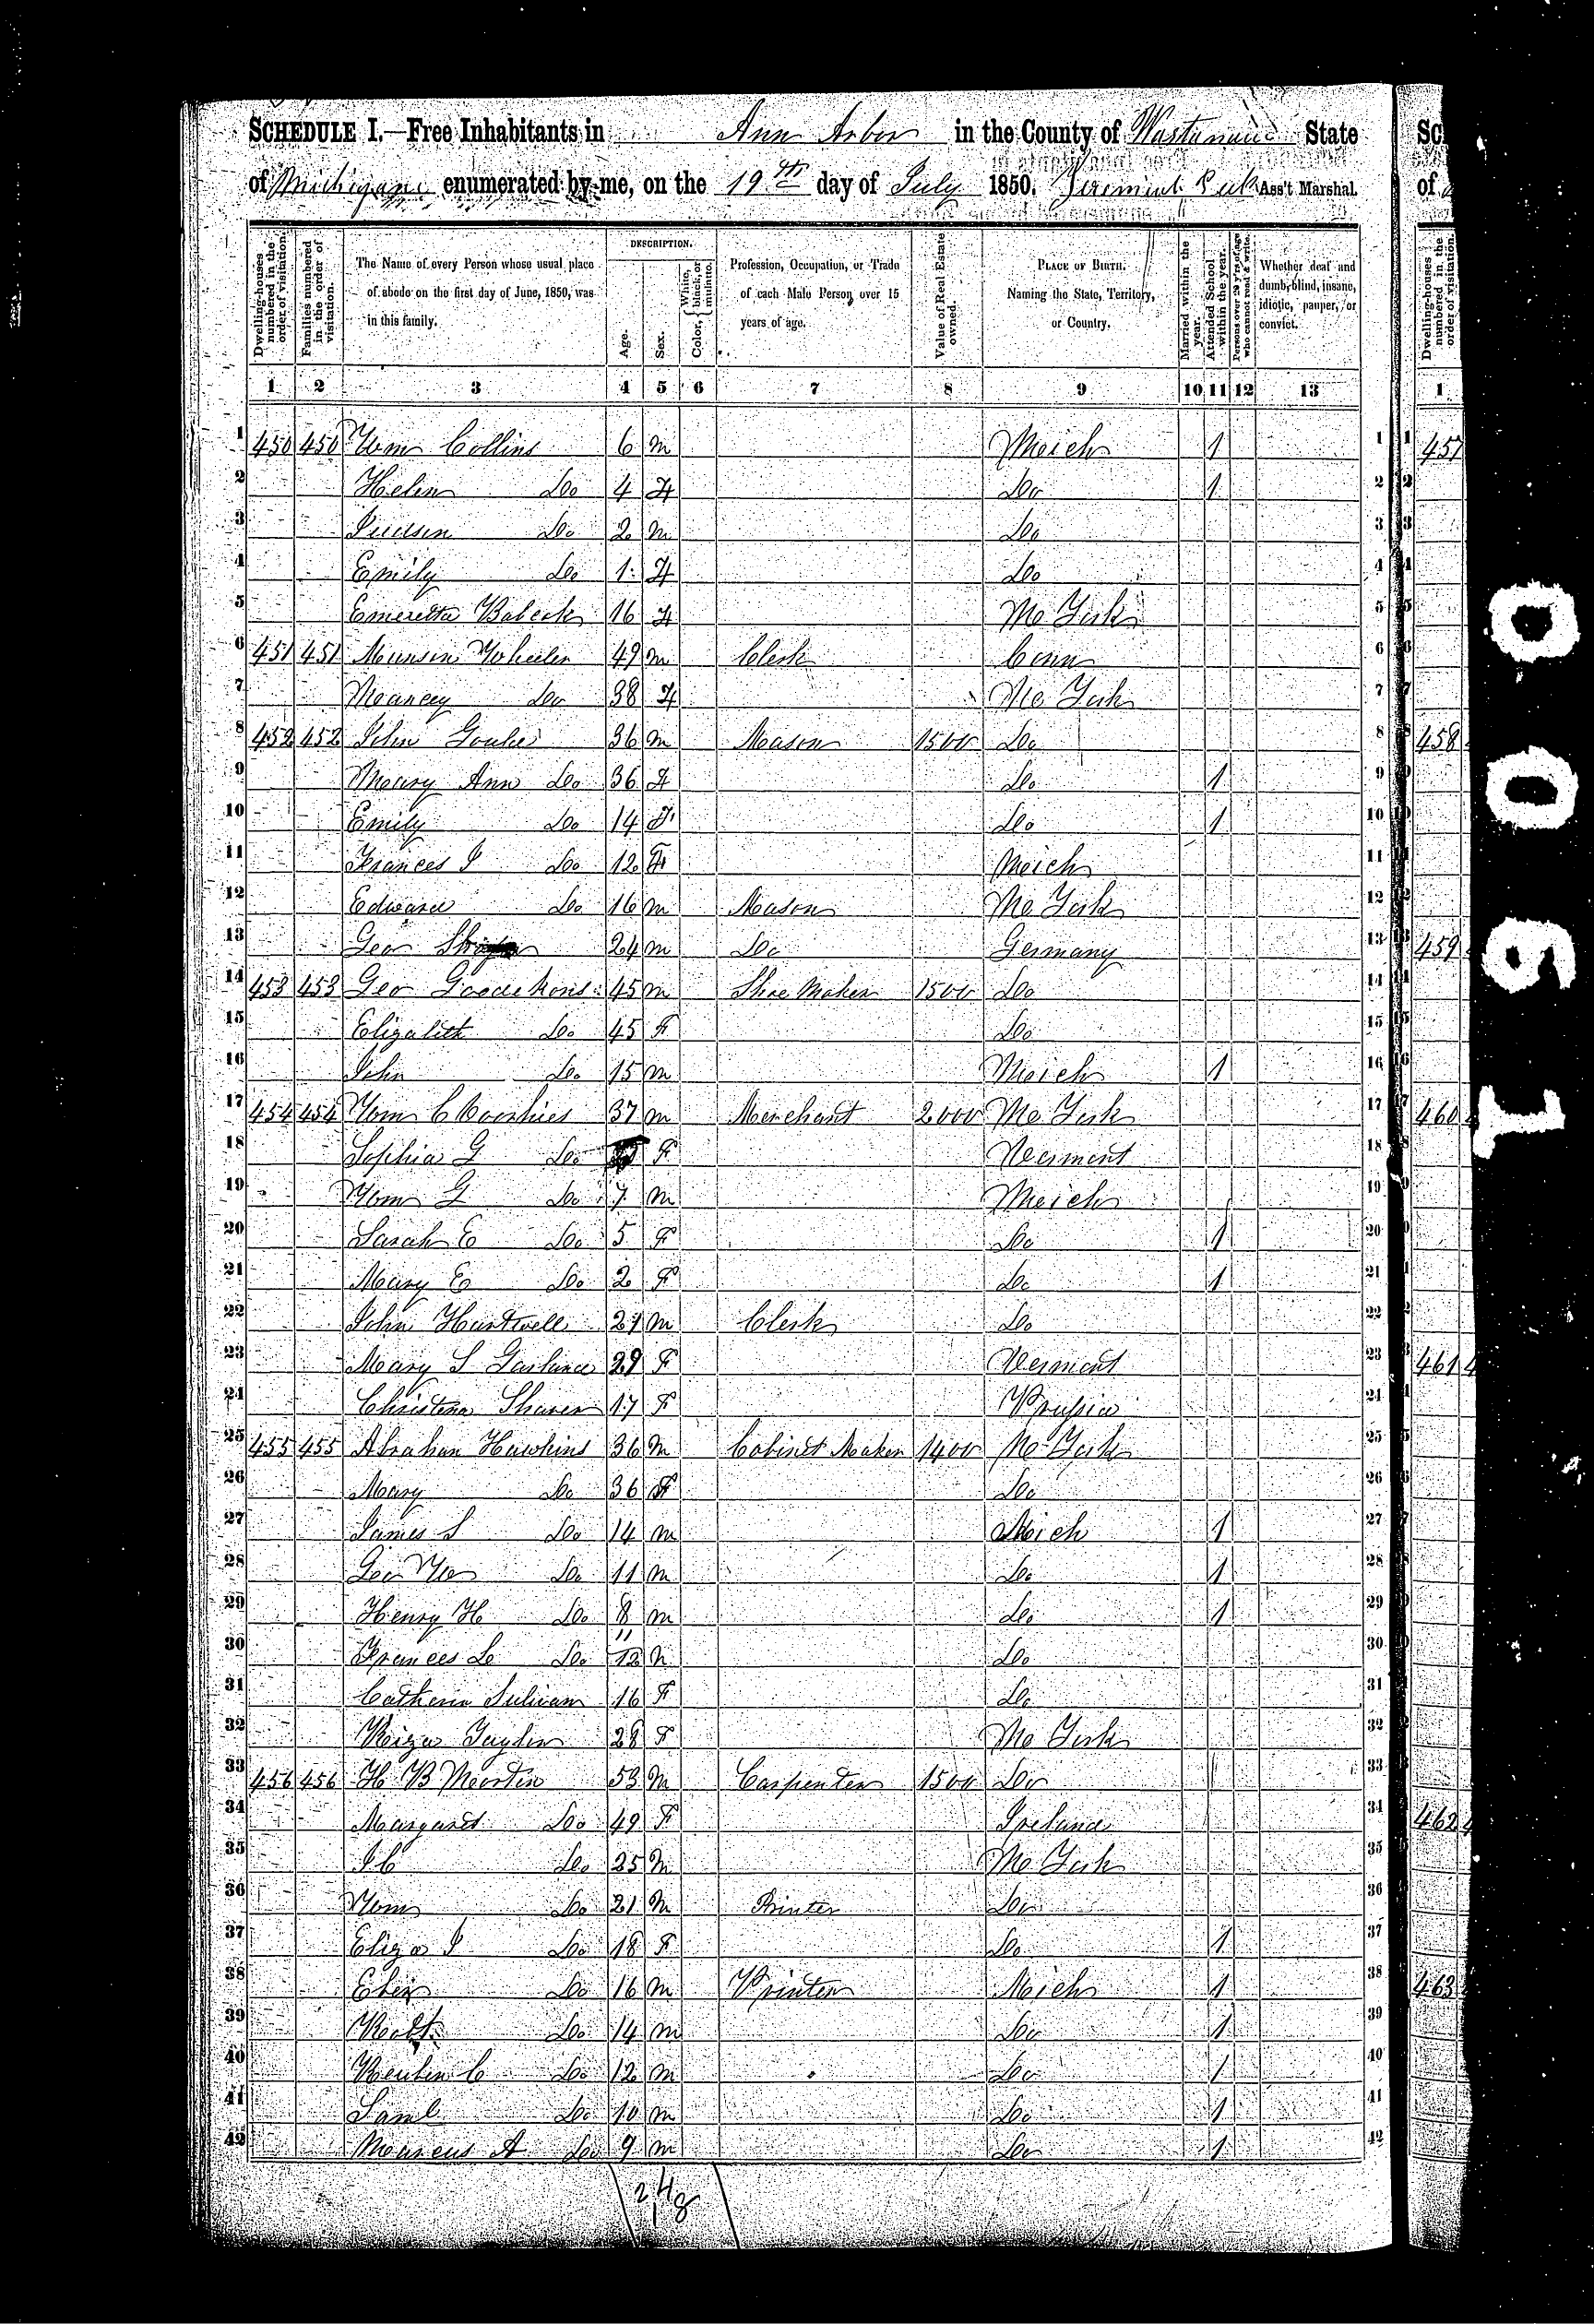 SCHEDULE I.—Free Inhabitants in Ann Arbor in the County of Washtenaw State
of Michigan enumerated by me, on the 19th day of July 1850. Jeremiah Peek Ass't Marshal.
Dwelling-houses numbered in the order of visitation.
Families numbered in the order of visitation.
The Name of every Person whose usual place of abode on the first day of June, 1850, was in this family.
DESCRIPTION.
Age.
Sex.
Color, White, black, or mulatto.
Profession, Occupation, or Trade of each Male Person over 15 years of age.
Value of Real Estate owned.
PLACE OF BIRTH. Naming the State, Territory, or Country.
Married within the year.
Attended School within the year.
Persons over 20 y'rs of age who cannot read & write.
Whether deaf and dumb, blind, insane, idiotic, pauper, or convict.
1 2 3 4 5 6 7 8 9 10 11 12 13
1 450 450 Wm Collins 6 m Mich 1 1
2 Helen Do 4 F Do 1 2
3 Judson Do 2 m Do 3
4 Emily Do 1 F Do 4
5 Emeretta Babcock 16 F Ne York 5
6 451 451 Munson Wheeler 49 m Clerk Conn 6
7 Nancy Do 38 F Ne York 7
8 452 452 John 36 m Mason 1500 Do 8
9 Mary Ann Do 36 F Do 1 9
10 Emily Do 14 F Do 1 10
11 Frances J Do 12 F Mich 11
12 Edward Do 16 m Mason Ne York 12
13 Geo 24 m Do Germany 13
14 453 453 Geo 45 m Shoe Maker 1500 Do 14
15 Elizabeth Do 45 F Do 15
16 John Do 15 m Mich 1 16
17 454 454 Wm C Voorhies 37 m Merchant 2000 Ne York 17
18 Sophia G Do F Vermont 18
19 Wm G Do 7 m Mich 19
20 Sarah E Do 5 F Do 1 20
21 Mary E Do 2 F Do 1 21
22 John Hartwell 21 m Clerk Do 22
23 Mary S Garland 29 F Vermont 23
24 Christina Sharer 17 F Prussia 24
25 455 455 Abraham Hawkins 36 m Cabinet Maker 1400 Ne York 25
26 Mary Do 36 F Do 26
27 James S Do 14 m Mich 1 27
28 Geo W Do 11 m Do 1 28
29 Henry H Do 8 m Do 1 29
30 Frances L Do 11/12 Do 30
31 Catherin Sulivan 16 F Do 31
32 Taylor 28 F Ne York 32
33 456 456 H B Martin 53 m Carpenter 1500 Do 33
34 Margaret Do 49 F Ireland 34
35 J C Do 25 m Ne York 35
36 Wm Do 21 m Printer Do 36
37 Eliza J Do 18 F Do 1 37
38 Eben Do 16 m Printer Mich 1 38
39 Robt Do 14 m Do 1 39
40 Reuben C Do 12 m Do 1 40
41 Saml Do 10 m Do 1 41
42 Marcus A Do 9 m Do 1 42
24
18
457
458
459
460
461
462
463
0091